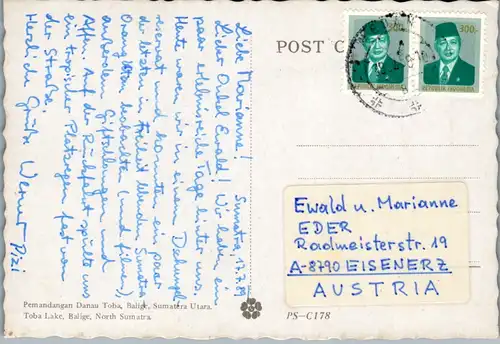 POST C
300,-
REPUBLIK INDONESIA
Sumatra, 17.7.89
Liebe Marianne!
Lieber Onkel Ewald! Wir haben ein
paar erlebnisreiche Tage hinter uns.
Heute waren wir in einem Dschungel-
reservat und konnten ein paar
der letzten in Freiheit lebenden Sumatra-
Orang Utans beobachten (und filmen)
außerdem Giftschlangen und
Affen. Auf der Rückfahrt spülte uns
ein tropischer Platzregen fast von
der Straße.
Herzliche Grüße Werner
Ewald u. Marianne
EDER
Radmeisterstr. 19
A-8790 EISENERZ
AUSTRIA
Pemandangan Danau Toba, Balige, Sumatera Utara.
Toba Lake, Balige, North Sumatra.
PS-C178